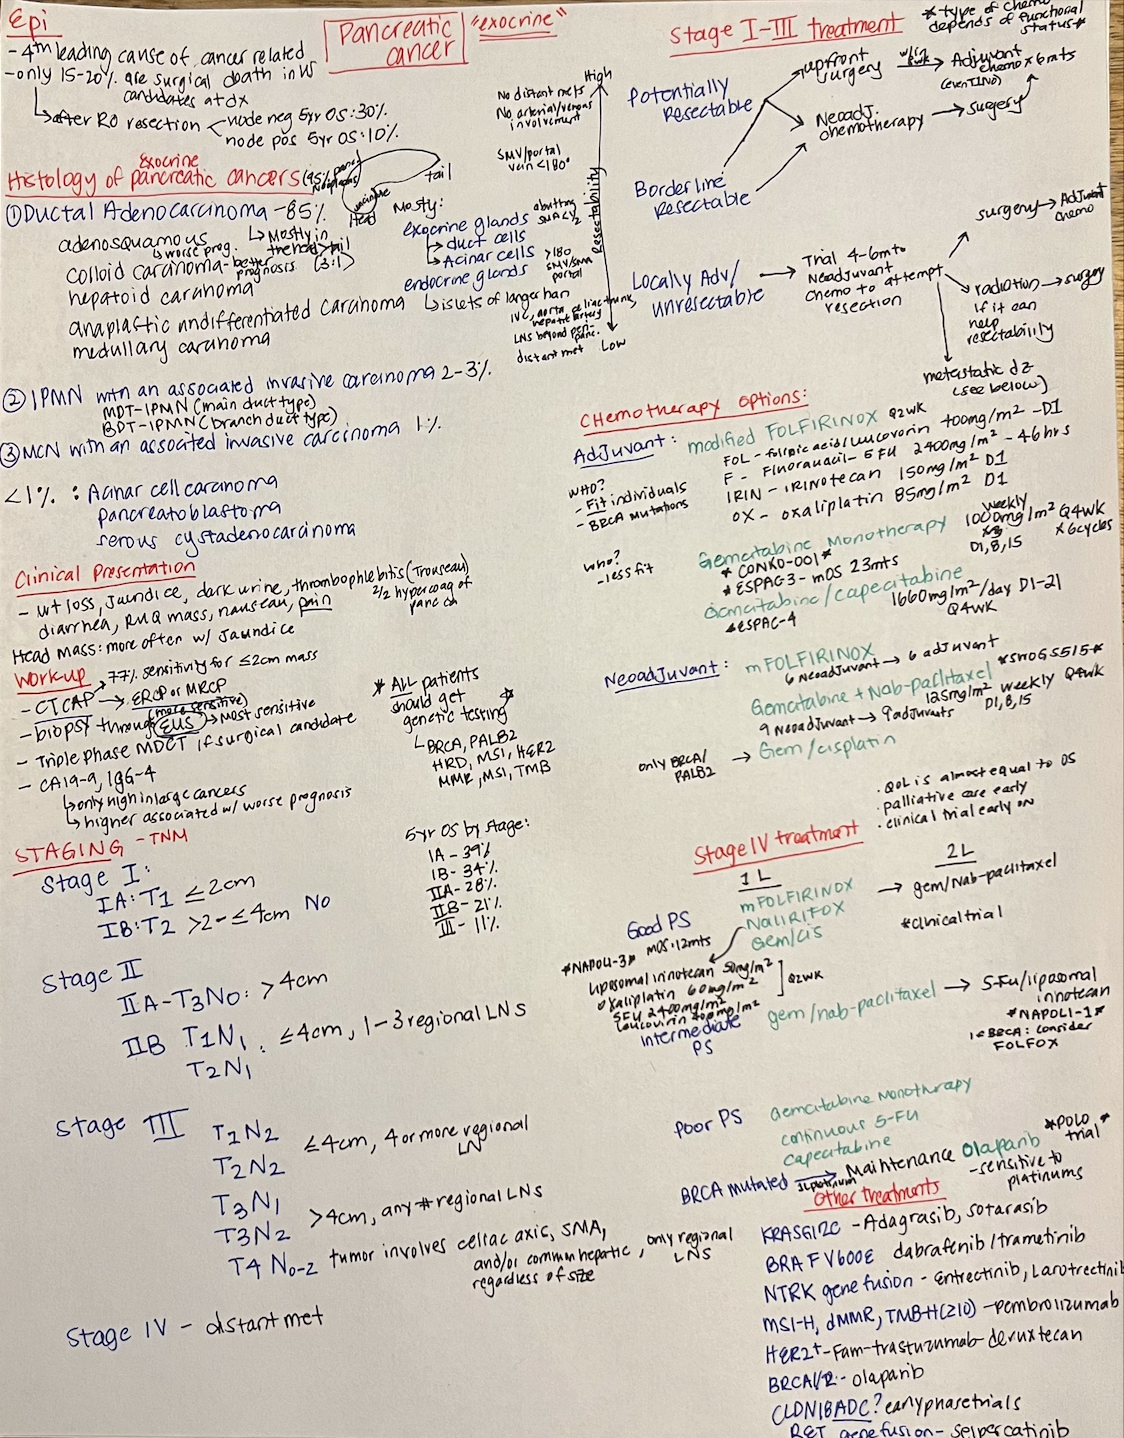 Epi
- 4th leading cause of cancer related death in US
- only 15-20% are surgical candidates at dx
after R0 resection
node neg 5yr OS: 30%
node pos 5yr OS: 10%
Pancreatic cancer
"exocrine"
Histology of exocrine pancreatic cancers
① Ductal Adenocarcinoma - 85%
Mostly in the head > tail (3:1)
adenosquamous
worse prog.
colloid carcinoma - better prognosis
hepatoid carcinoma
anaplastic undifferentiated carcinoma
medullary carcinoma
Head
tail
Mostly:
exocrine glands
duct cells
Acinar cells
endocrine glands
islets of langerhan
② IPMN with an associated invasive carcinoma 2-3%
MDT-IPMN (main duct type)
BDT-IPMN (branch duct type)
③ MCN with an associated invasive carcinoma 1%
<1% : Acinar cell carcinoma
pancreatoblastoma
serous cystadenocarcinoma
Clinical Presentation
- wt loss, Jaundice, dark urine, thrombophlebitis (Trousseau)
2/2 hypercoag of panc ca
diarrhea, RUQ mass, nauseau, pain
Head Mass: more often w/ Jaundice
Workup
77% sensitivity for ≤2cm mass
- CTCAP → ERCP or MRCP
(more sensitive)
- biopsy through EUS → Most sensitive
- Triple phase MDCT if surgical candidate
- CA19-9, IgG-4
only high in large cancers
higher associated w/ worse prognosis
* ALL patients should get genetic testing *
BRCA, PALB2
HRD, MSI, HER2
MMR, MSI, TMB
STAGING - TNM
Stage I:
IA: T1 ≤2cm
IB: T2 >2-≤4cm
N0
Stage II
IIA-T3N0: >4cm
IIB T1N1
T2N1
: ≤4cm, 1-3 regional LNs
5yr OS by Stage:
IA - 39%
IB - 34%
IIA - 28%
IIB - 21%
III - 11%
Stage III
T1N2
T2N2
≤4cm, 4 or more regional LN
T3N1
T3N2
>4cm, any # regional LNs
T4 N0-2 tumor involves celiac axis, SMA, and/or commun hepatic, regardless of size
only regional LNS
Stage IV - distant met
Stage I-III treatment
* type of chemo depends of functional status *
High
Resectability
Low
No distant mets
No arterial/venous involvement
SMV/portal vein <180°
>180 SMV/SMA portal
distant met
Potentially Resectable
upfront surgery
Adjuvant chemo x 6mts
(even T1N0)
Neoadj. chemotherapy → surgery
Borderline Resectable
Locally Adv/ unresectable
Trial 4-6mto Neoadjuvant chemo to attempt resection
surgery → Adjuvant chemo
radiation → surgery
if it can help resectability
metastatic dz (see below)
CHemotherapy options:
Adjuvant:
modified FOLFIRINOX Q2wk
FOL - folinic acid/leucovorin 400mg/m² - D1
F - Fluorauacil - 5FU 2400mg/m² - 46hrs
IRIN - IRINotecan 150mg/m² D1
OX - oxaliplatin 85mg/m² D1
WHO?
- Fit individuals
- BRCA mutations
who?
- less fit
Gemcitabine Monotherapy
weekly x3
1000mg/m² Q4wk
D1,8,15
x 6cycles
* CONKO-001 *
* ESPAC3 - mOS 23mts
Gemcitabine/capecitabine
1660mg/m²/day D1-21
Q4wk
*ESPAC-4
Neoadjuvant:
mFOLFIRINOX
6 Neoadjuvant → 6 adjuvant
Gemcitabine + Nab-paclitaxel
*SWOG S1515*
125mg/m² weekly Q4wk
D1,8,15
9 Neoadjuvant → 9 adjuvants
only BRCA/ PALB2 → Gem/cisplatin
Stage IV treatment
· QOL is almost equal to OS
· palliative care early
· clinical trial early on
1L
2L
Good PS
mFOLFIRINOX
NaLIRIFOX
Gem/cis
→ gem/Nab-paclitaxel
*clinical trial
*NAPOLI-3*
mOS: 12mts
Liposomal irinotecan 50mg/m²
oxaliplatin 60mg/m²
5FU 2400mg/m²
Leucovorin 400mg/m²
Q2WK
intermediate PS
gem/nab-paclitaxel → 5-Fu/liposomal irinotecan
*NAPOLI-1*
BRCA: consider FOLFOX
Poor PS
Gemcitabine Monotherapy
continuous 5-FU
Capecitabine
BRCA mutated → Maintenance Olaparib
*POLO trial*
- sensitive to platinums
Other treatments
KRASG12C - Adagrasib, sotarasib
BRAF V600E dabrafenib/trametinib
NTRK gene fusion - Entrectinib, Larotrectinib
MSI-H, dMMR, TMB-H(≥10) - pembrolizumab
HER2+ - Fam-trastuzumab-deruxtecan
BRCA1/2 - olaparib
CLDN18ADC? early phase trials
RET gene fusion - selpercatinib